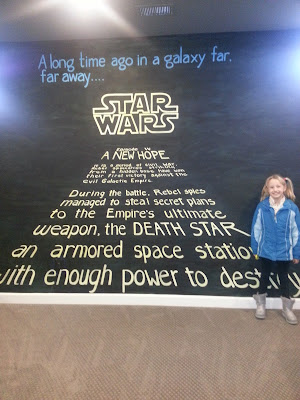 A long time ago in a galaxy far,
far away....
STAR
WARS
Episode IV
A NEW HOPE
It is a period of civil war.
Rebel spaceships, striking
from a hidden base, have won
their first victory against the
evil Galactic Empire.
During the battle, Rebel spies
managed to steal secret plans
to the Empire's ultimate
weapon, the DEATH STAR
an armored space station
with enough power to destroy